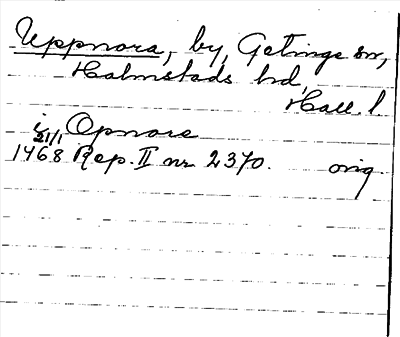 Uppnora, by, Getinge sn,
Halmstads hd,
Hall. l
i Opnore
21/1
1468 Rep. II nr 2370. orig